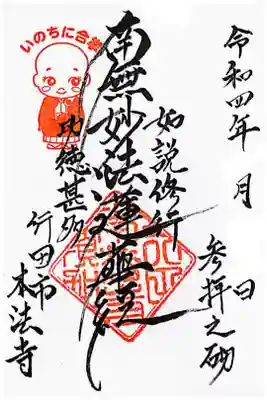 令和四年　月　日
参拝之砌
如説修行
南無妙法蓮華経
功徳甚多
行田市
本法寺
いのちに合掌